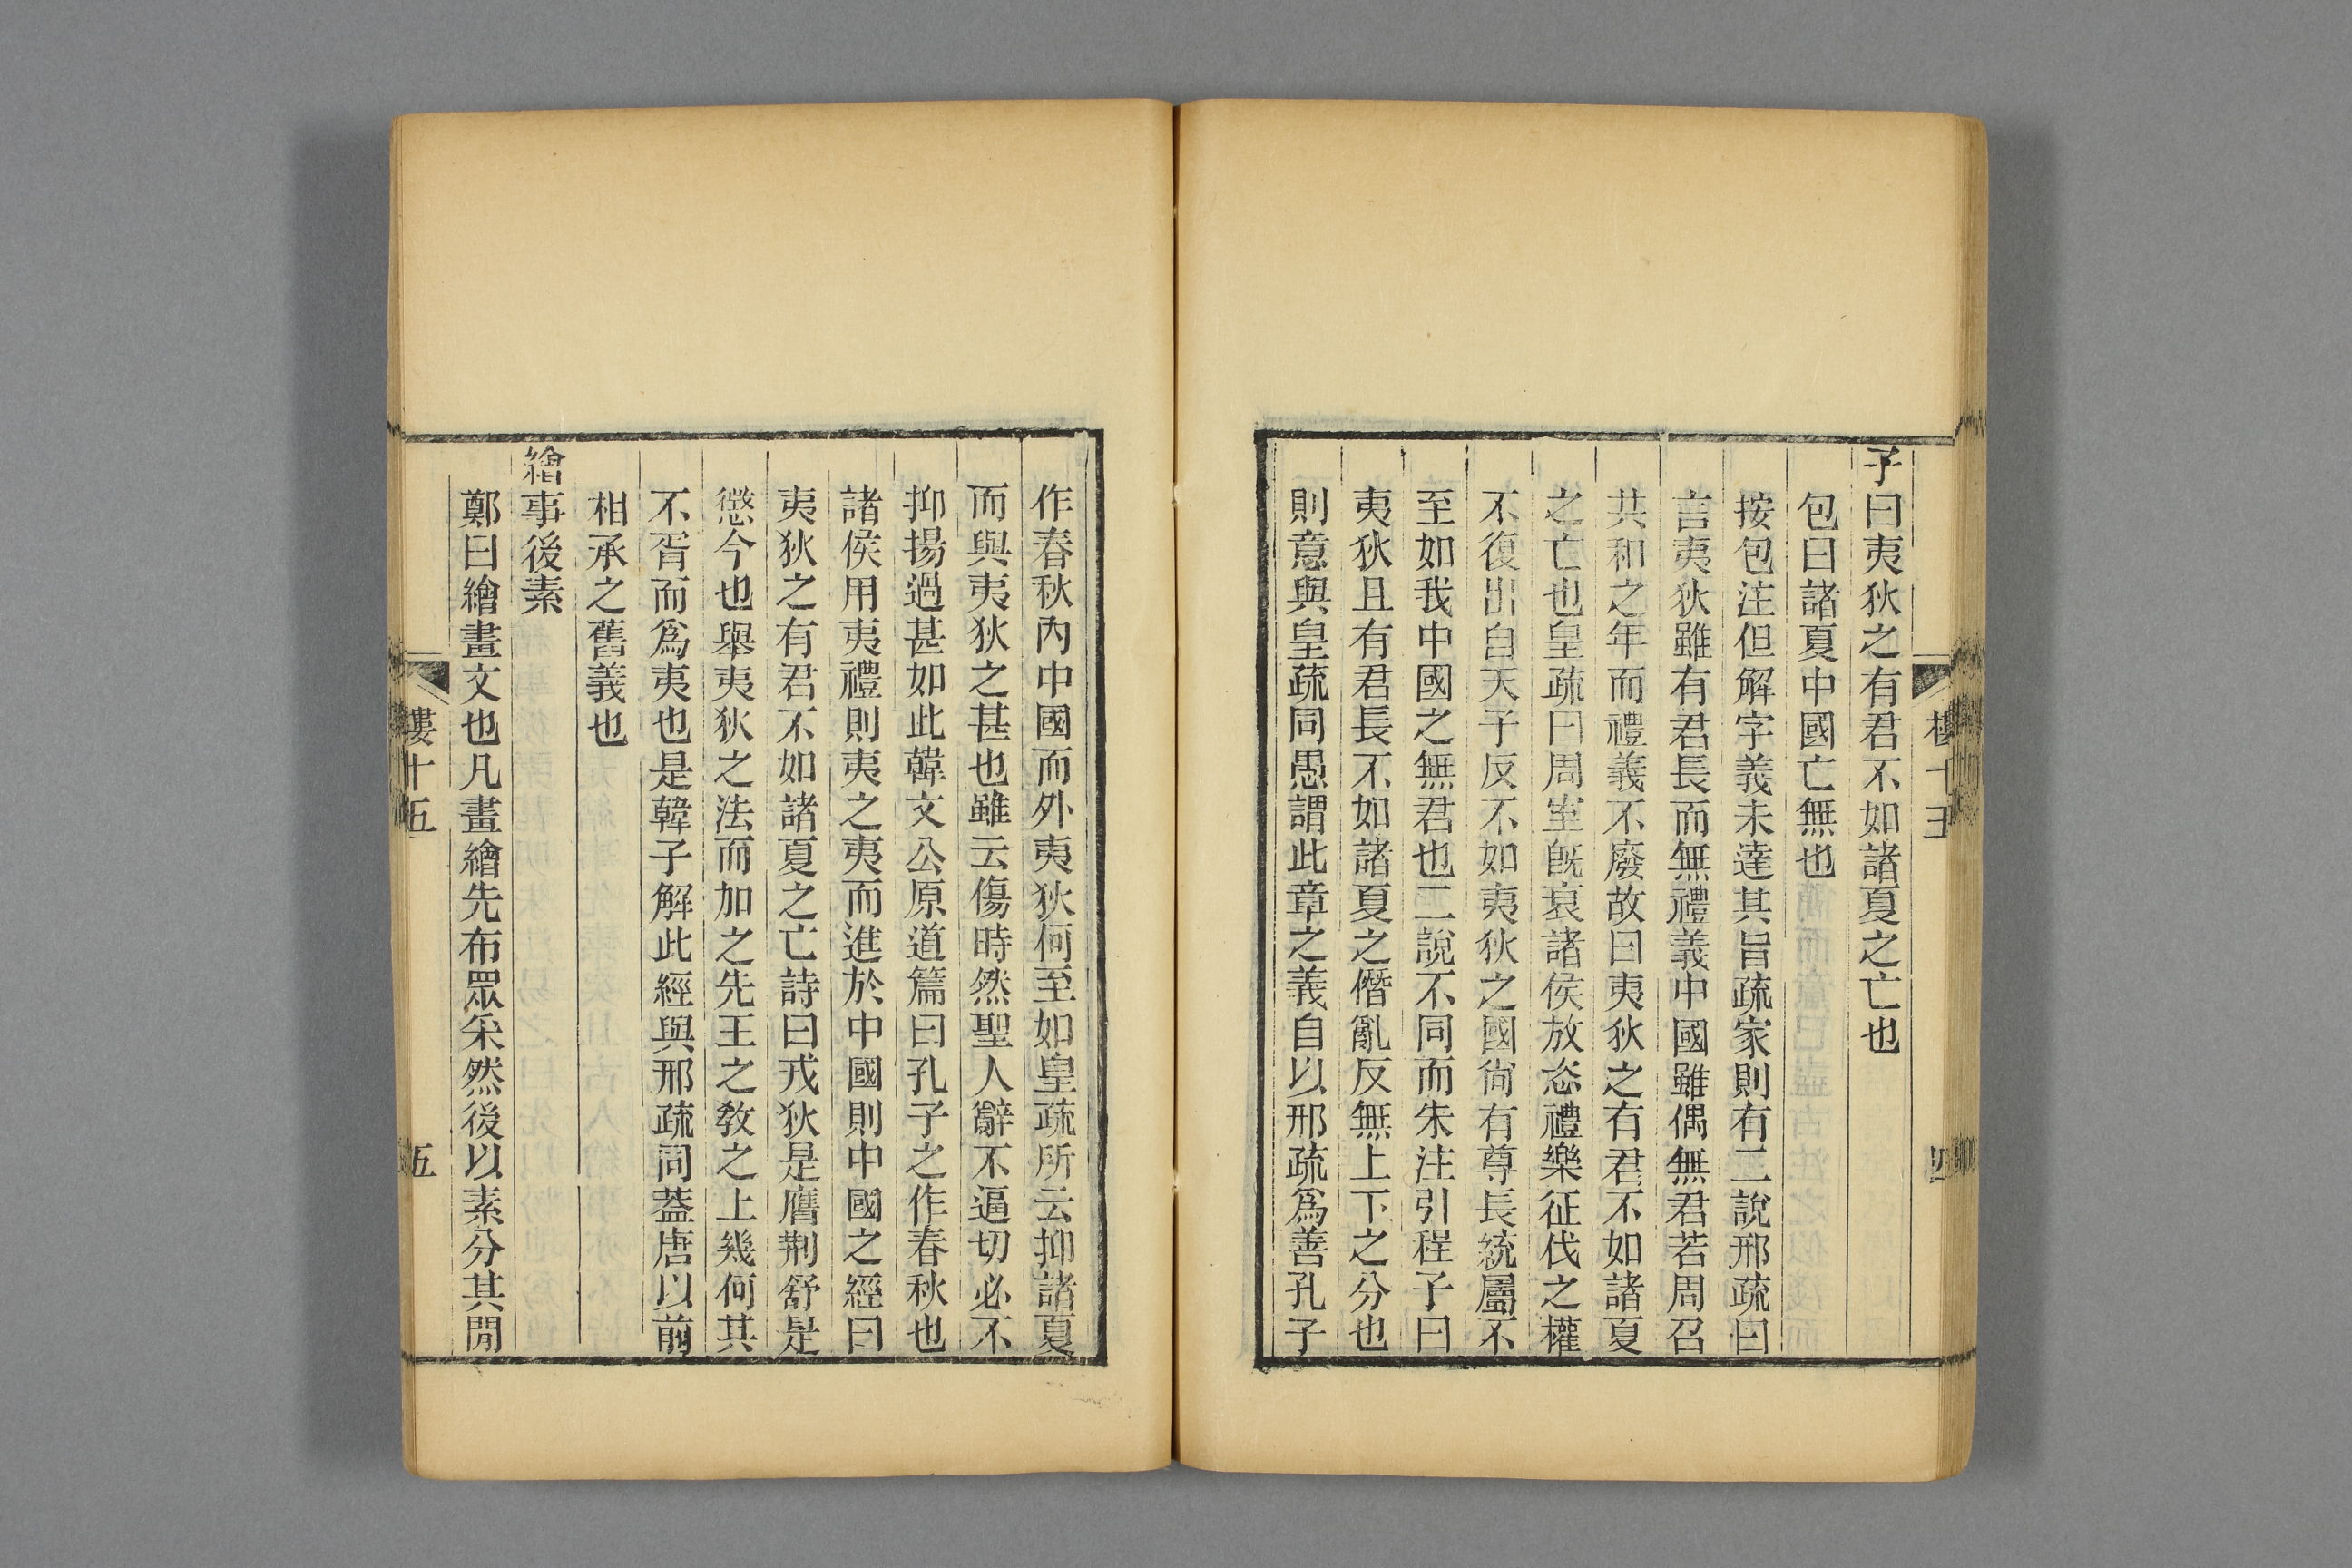 子曰夷狄之有君不如諸夏之亡也
包曰諸夏中國亡無也
按包注但解字義未達其旨疏家則有二說邢疏曰
言夷狄雖有君長而無禮義中國雖偶無君若周召
共和之年而禮義不廢故曰夷狄之有君不如諸夏
之亡也皇疏曰周室旣衰諸侯放恣禮樂征伐之權
不復出自天子反不如夷狄之國尙有尊長統屬不
至如我中國之無君也二說不同而朱注引程子曰
夷狄且有君長不如諸夏之僭亂反無上下之分也
則意與皇疏同愚謂此章之義自以邢疏爲善孔子
作春秋內中國而外夷狄何至如皇疏所云抑諸夏
而與夷狄之甚也雖云傷時然聖人辭不逼切必不
抑揚過甚如此韓文公原道篇曰孔子之作春秋也
諸侯用夷禮則夷之夷而進於中國則中國之經曰
夷狄之有君不如諸夏之亡詩曰戎狄是膺荆舒是
懲今也舉夷狄之法而加之先王之敎之上幾何其
不胥而爲夷也是韓子解此經與邢疏同蓋唐以前
相承之舊義也
繪事後素
鄭曰繪畫文也凡畫繪先布眾采然後以素分其閒
樓十五
五